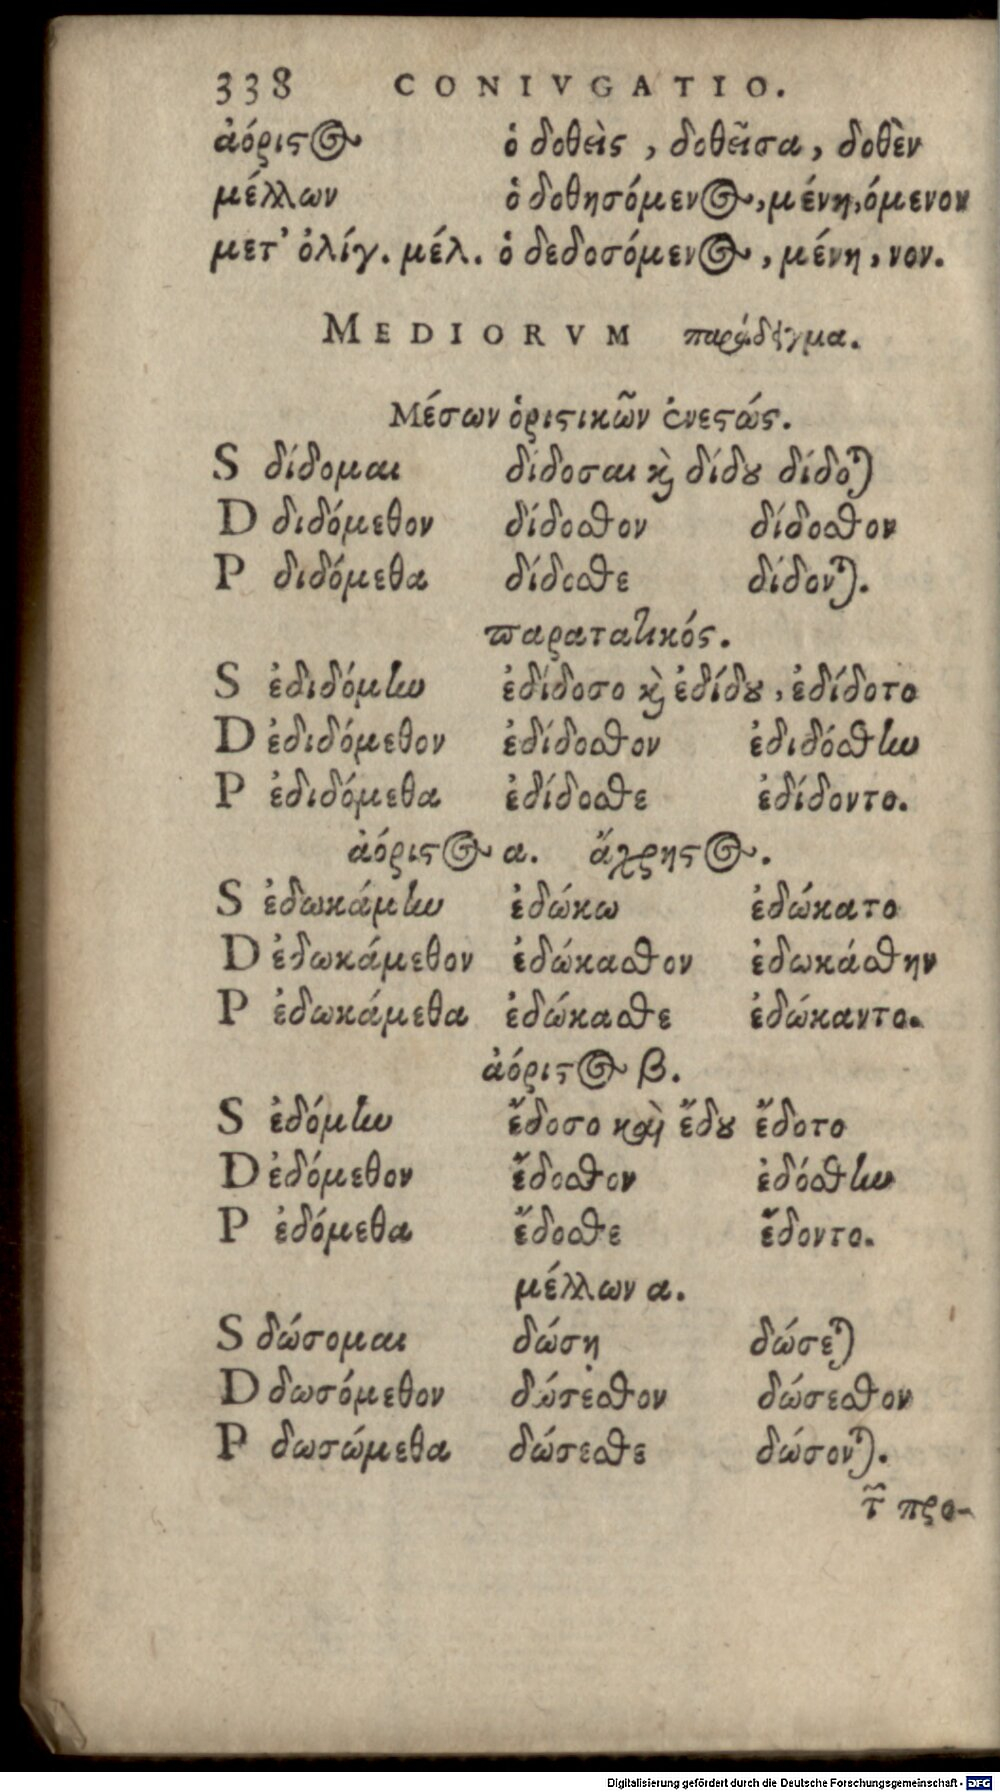 338 CONIVGATIO.
ἀόριςος ὁ δοθεὶς, δοθεῖσα, δοθὲν
μέλλων ὁ δοθησόμενος, μένη, όμενον
μετ' ὀλίγ. μέλ. ὁ δεδοσόμενος, μένη, νον.
MEDIORVM παράδειγμα.
Μέσων ὁριςικῶν ἐνεςώς.
S δίδομαι δίδοσαι καὶ δίδου δίδοται
D διδόμεθον δίδοσθον δίδοσθον
P διδόμεθα δίδοσθε δίδονται.
παρατατικός.
S ἐδιδόμην ἐδίδοσο καὶ ἐδίδου, ἐδίδοτο
D ἐδιδόμεθον ἐδίδοσθον ἐδιδόσθην
P ἐδιδόμεθα ἐδίδοσθε ἐδίδοντο.
ἀόριςος α. ἄχρηςος.
S ἐδωκάμην ἐδώκω ἐδώκατο
D ἐδωκάμεθον ἐδώκασθον ἐδωκάσθην
P ἐδωκάμεθα ἐδώκασθε ἐδώκαντο.
ἀόριςος β.
S ἐδόμην ἔδοσο καὶ ἔδου ἔδοτο
D ἐδόμεθον ἔδοσθον ἐδόσθην
P ἐδόμεθα ἔδοσθε ἔδοντο.
μέλλων α.
S δώσομαι δώσῃ δώσεται
D δωσόμεθον δώσεσθον δώσεσθον
P δωσώμεθα δώσεσθε δώσονται.
τῶν προ-
Digitalisierung gefördert durch die Deutsche Forschungsgemeinschaft - DFG